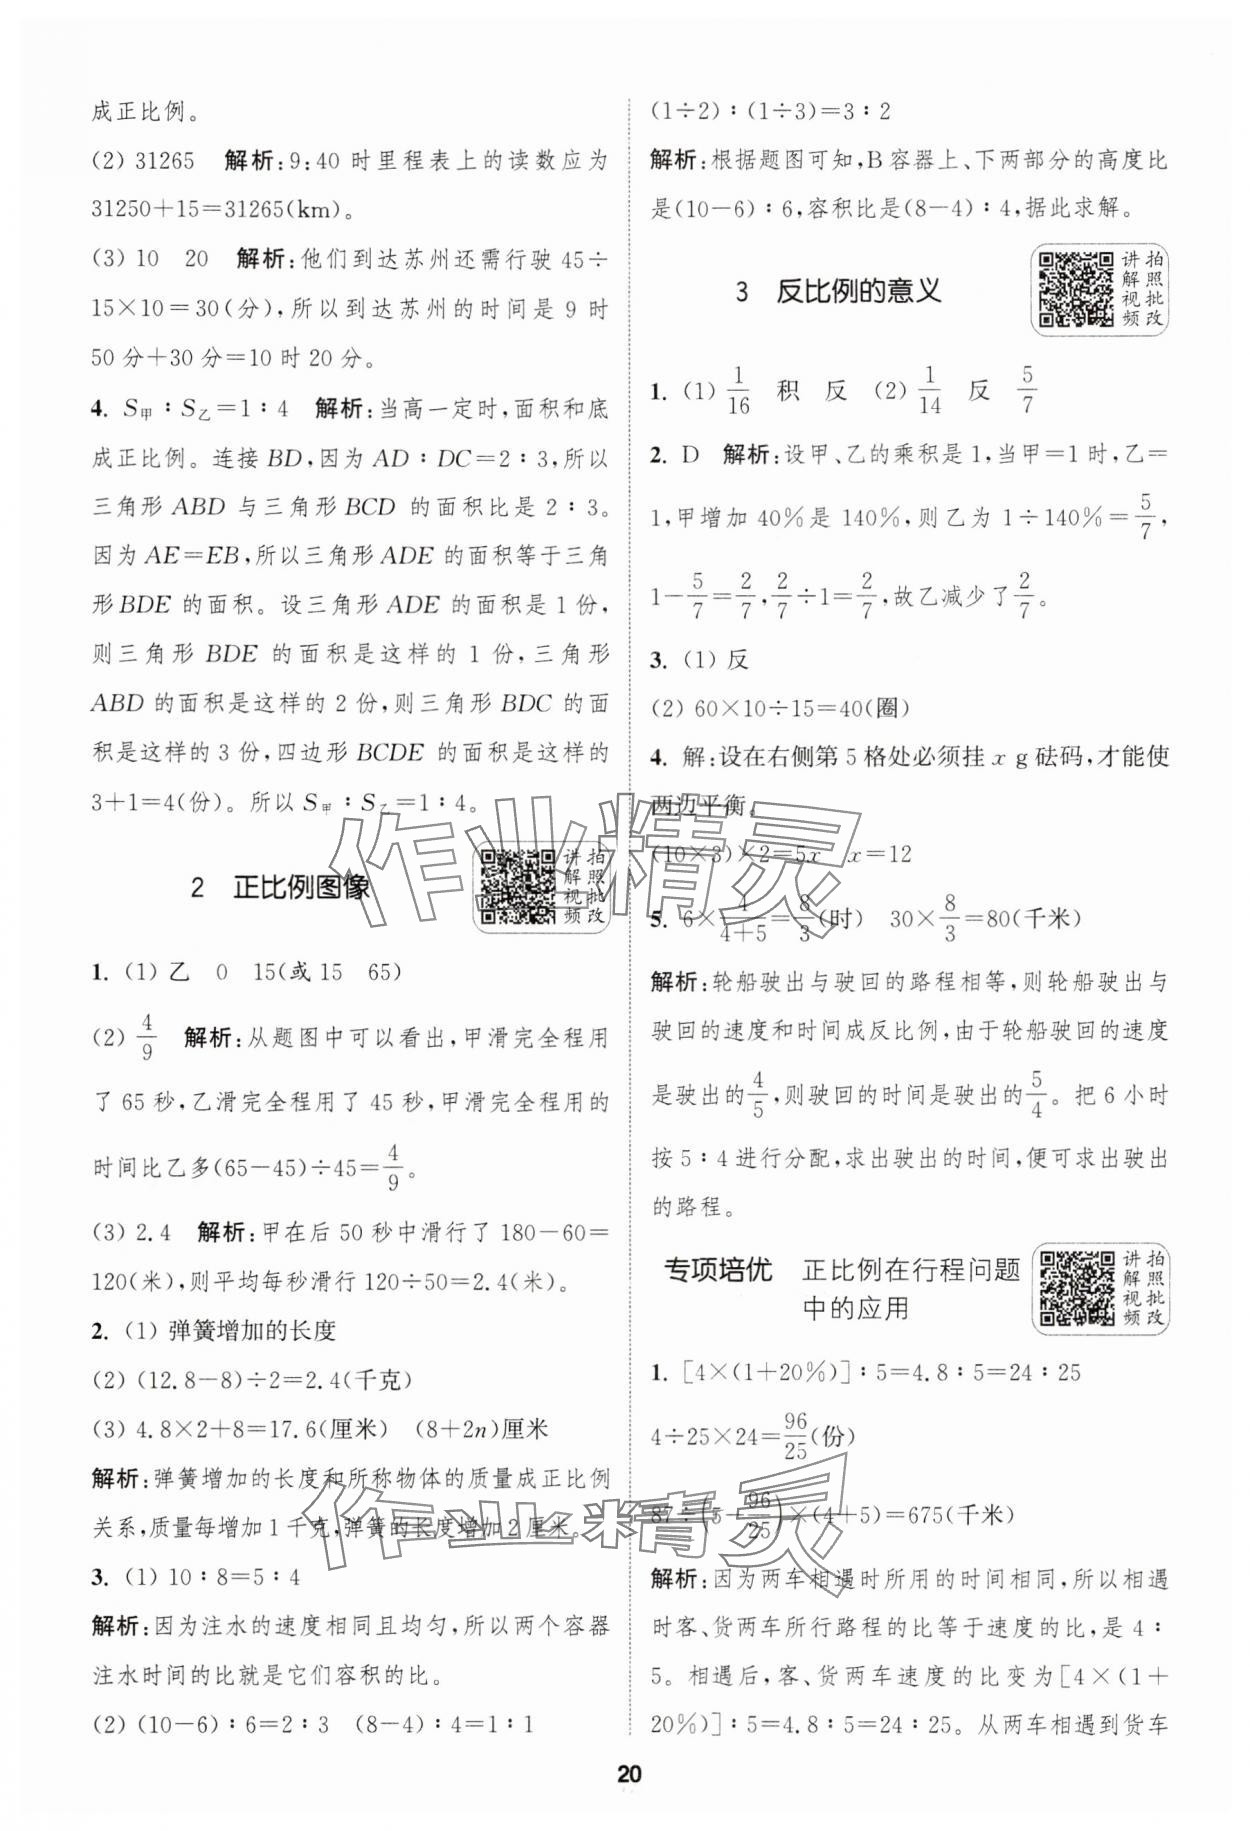 成正比例。
(2) 31265 解析:9:40 时里程表上的读数应为
31250+15=31265(km)。
(3) 10 20 解析:他们到达苏州还需行驶 45÷
15×10=30(分),所以到达苏州的时间是 9 时
50 分+30 分=10 时 20 分。
4. S甲∶S乙=1∶4 解析:当高一定时,面积和底
成正比例。连接 BD,因为 AD∶DC=2∶3,所以
三角形 ABD 与三角形 BCD 的面积比是 2∶3。
因为 AE=EB,所以三角形 ADE 的面积等于三角
形 BDE 的面积。设三角形 ADE 的面积是 1 份,
则三角形 BDE 的面积是这样的 1 份,三角形
ABD 的面积是这样的 2 份,则三角形 BDC 的面
积是这样的 3 份,四边形 BCDE 的面积是这样的
3+1=4(份)。所以 S甲∶S乙=1∶4。
2 正比例图像
讲解视频 拍照批改
1. (1) 乙 0 15(或 15 65)
(2) 4/9 解析:从题图中可以看出,甲滑完全程用
了 65 秒,乙滑完全程用了 45 秒,甲滑完全程用的
时间比乙多(65-45)÷45=4/9。
(3) 2.4 解析:甲在后 50 秒中滑行了 180-60=
120(米),则平均每秒滑行 120÷50=2.4(米)。
2. (1) 弹簧增加的长度
(2) (12.8-8)÷2=2.4(千克)
(3) 4.8×2+8=17.6(厘米) (8+2n)厘米
解析:弹簧增加的长度和所称物体的质量成正比例
关系,质量每增加 1 千克,弹簧的长度增加 2 厘米。
3. (1) 10∶8=5∶4
解析:因为注水的速度相同且均匀,所以两个容器
注水时间的比就是它们容积的比。
(2) (10-6)∶6=2∶3 (8-4)∶4=1∶1
(1÷2)∶(1÷3)=3∶2
解析:根据题图可知,B 容器上、下两部分的高度比
是(10-6)∶6,容积比是(8-4)∶4,据此求解。
3 反比例的意义
讲解视频 拍照批改
1. (1) 1/16 积 反 (2) 1/14 反 5/7
2. D 解析:设甲、乙的乘积是 1,当甲=1 时,乙=
1,甲增加 40%是 140%,则乙为 1÷140%=5/7,
1-5/7=2/7,2/7÷1=2/7,故乙减少了2/7。
3. (1) 反
(2) 60×10÷15=40(圈)
4. 解:设在右侧第 5 格处必须挂 x g 砝码,才能使
两边平衡。
(10×3)×2=5x x=12
5. 6×4/(4+5)=8/3(时) 30×8/3=80(千米)
解析:轮船驶出与驶回的路程相等,则轮船驶出与
驶回的速度和时间成反比例,由于轮船驶回的速度
是驶出的4/5,则驶回的时间是驶出的5/4。把 6 小时
按 5∶4 进行分配,求出驶出的时间,便可求出驶出
的路程。
专项培优 正比例在行程问题
中的应用
讲解视频 拍照批改
1. [4×(1+20%)]∶5=4.8∶5=24∶25
4÷25×24=96/25(份)
87÷(5-96/25)×(4+5)=675(千米)
解析:因为两车相遇时所用的时间相同,所以相遇
时客、货两车所行路程的比等于速度的比,是 4∶
5。相遇后,客、货两车速度的比变为[4×(1+
20%)]∶5=4.8∶5=24∶25。从两车相遇到货车
20
作业精灵
作业精灵